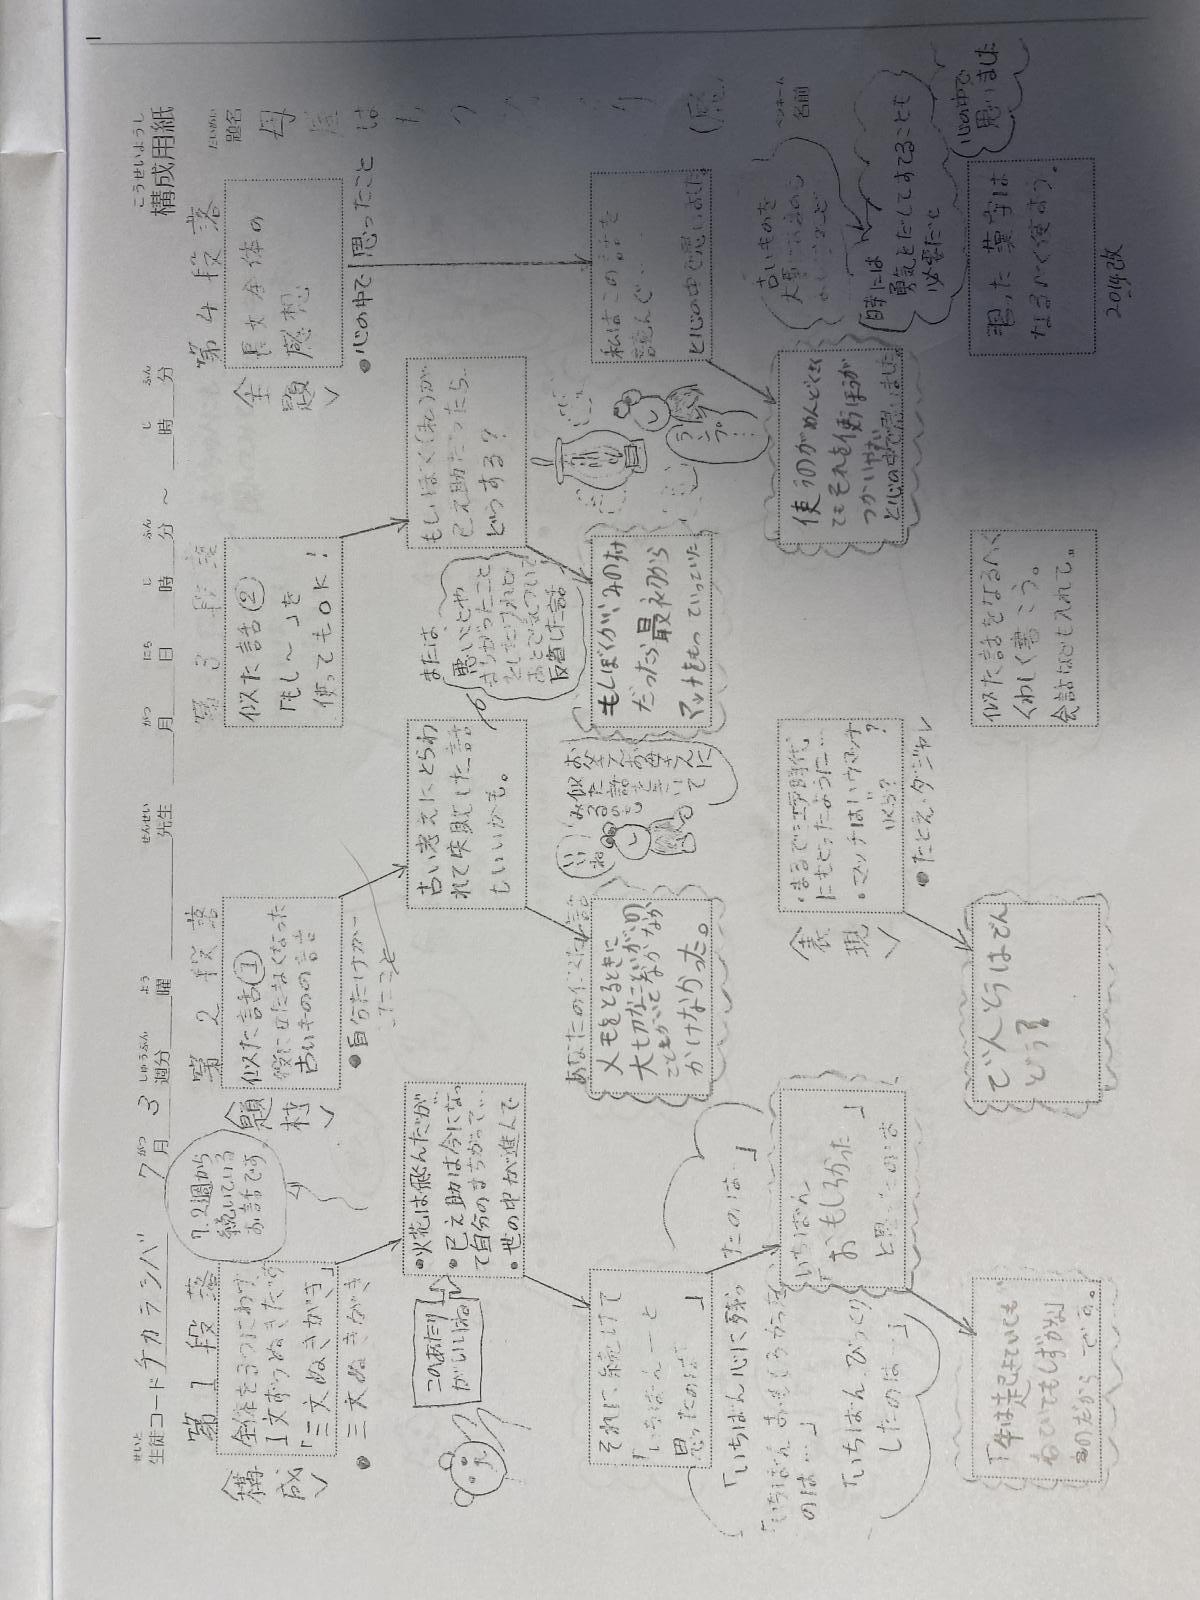 こうせいようし
構成用紙
せいと
生徒コード チカラシバ 7 がつ月 3 しゅうふん週分 よう曜 せんせい先生 がつ月 にち日 じ時 ふん分 ~ じ時 ふん分
題名
母屋は
名前
第1段落
<構成>
1文ずつぬきだす
「三文ぬきがき」
●三文ぬきがき
7.2週から
続いている
お話です
・火花は飛んだが…
・巳之助は今になって
自分のまちがって…
・世の中が進んで
このあたり
がいいね
それに続けて
「いちばん…と
思ったのは…」
「いちばん心に残ったのは…」
「いちばんおもしろかった
のは…」
「いちばん、びっくり
したのは…」
いちばん
「おもしろかった」
と思ったのは
第2段落
<題材>
似た話①
役に立たなくなった
古いものの話
古い考えにとらわ
れて失敗した話
もいいかも。
あなたの似た話
メモをとるときに
かけなかった。
第3段落
似た話②
「もし~」を
使ってもOK!
もしぼく(私)が
巳之助だったら…
どうする?
または、
悪いことや
まちがったこと
をしたけれど
あとで気づいて
反省した話
もしぼくが、
だったら最初から
マッチをもっていっていた
お父さんお母さんに
似た話を
きいて
みるのも
いいね
<表現>
・まるで江戸時代
にもどったように…
・マッチはハウマッチ
いくら?
●たとえ・ダジャレ
でんとうはでん
どう?
似た話をなるべく
くわしく書こう。
会話なども入れて。
第4段落
<主題>
長文全体の
感想
●心の中で思ったこと
私はこの話を
読んで…
と心の中で思いました。
ランプ!
古いものを
時には
勇気をだしてすてることも
必要だと
心の中で
思いました
使うのがめんどくさく
てもそれを使うほうが
つかいやすい
と心の中で思いました。
習った漢字は
なるべく使おう。
2014改